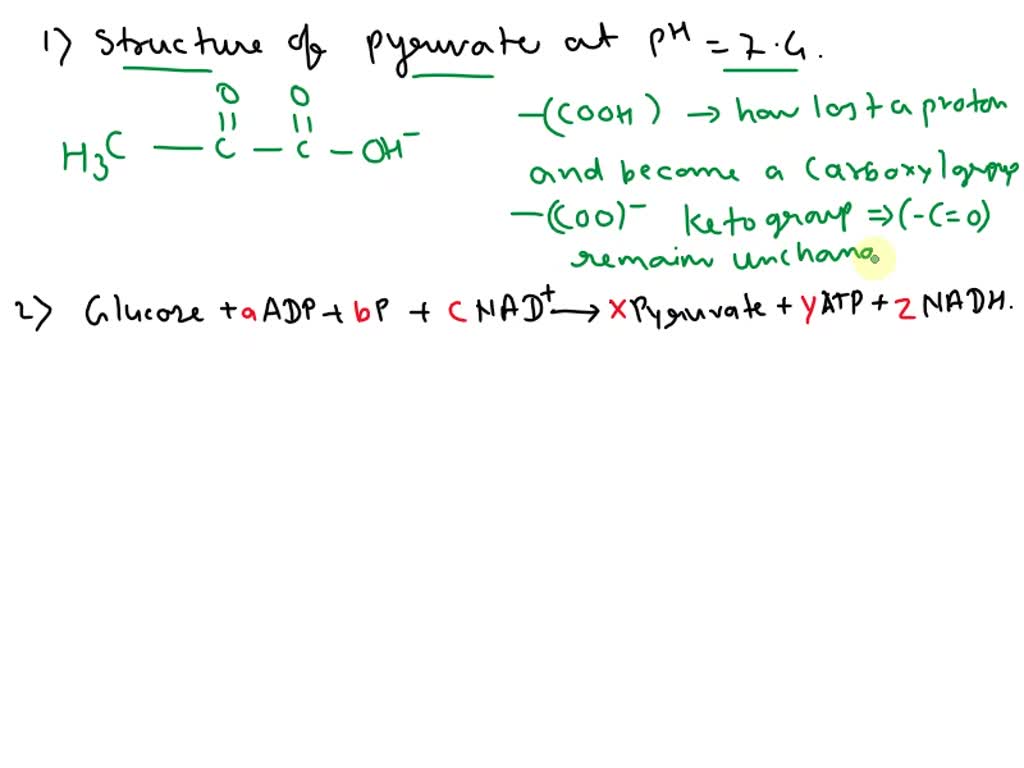 1) Structure of pyruvate at pH = 7.4.
O O
|| ||
H3C — C — C — OH⁻
—(COOH) → how lost a proton
and become a carboxyl group
—(COO)⁻ keto group ⇒ (-C=O)
remain unchan
2) Glucose + a ADP + b P + c NAD⁺ → x Pyruvate + y ATP + z NADH.